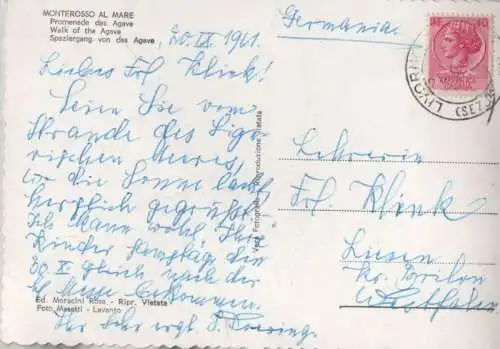 MONTEROSSO AL MARE
Promenade des Agave
Walk of the Agave
Spaziergang von des Agave
20. IX. 1961.
Liebes Frl. Klink!
Seien Sie vom
Strande des Ligu-
rischen Meeres,
wo die Sonne lacht
herzlich gegrüßt.
Ich kann wohl Ihre
Kinder Samstag den
30. X. gleich nach der
bekommen.
Ihr sehr ergb.
Ed. Moracini Rosa - Ripr. Vietata
Foto Masetti - Levanto
Vera Fotografia - Riproduzione vietata
Germania.
LIVORN
Lehrerin
Frl. Klink
Liesen
Kr. Brilon
Westfalen